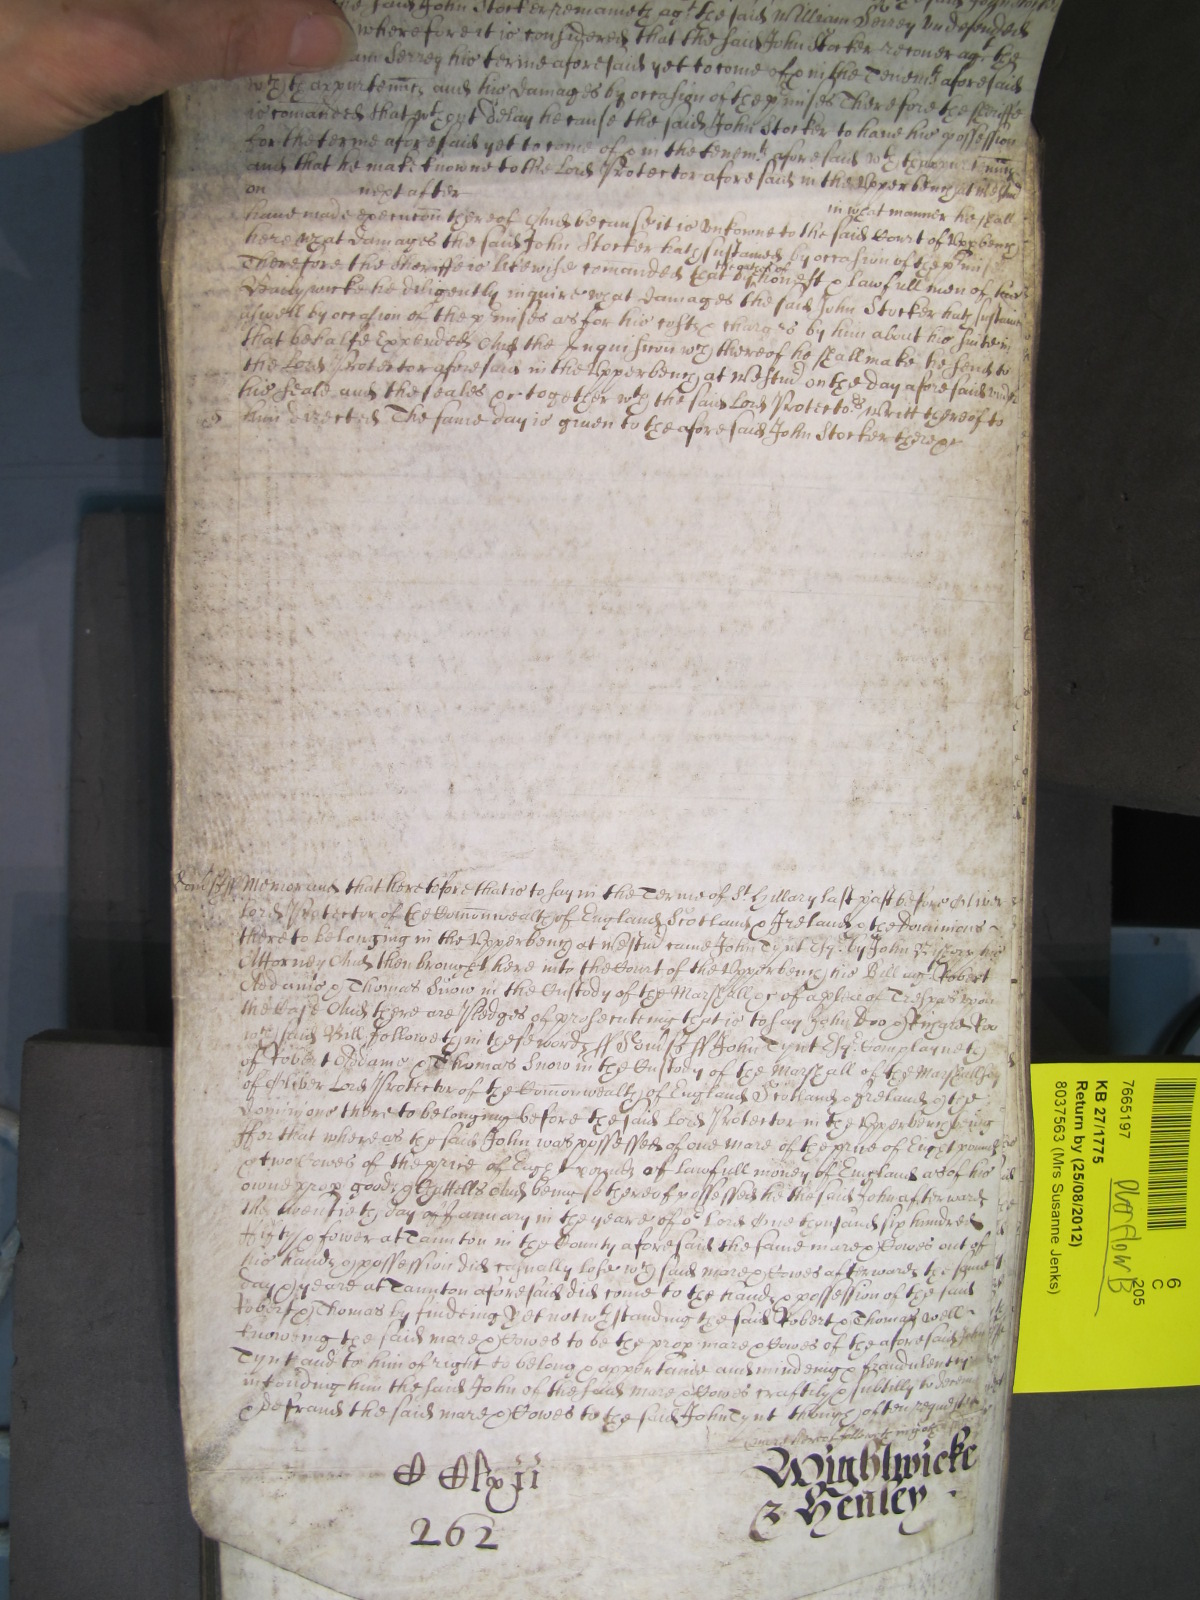 said John Stocker remaineth agt the said William Serrey undefended
wherefore it is considered that the said John Stocker recover agt the
Serrey his terme aforesaid yet to come of & in the Tenemts aforesaid
wth thappurtenncs and his damages by occasion of the pmises Therefore the sheriffe
is comanded that wthout delay he cause the said John Stocker to have his possession
for the terme aforesaid yet to come of & in the tenemts aforesaid wth thappurtenncs
and that he make knowne to the Lord Protector aforesaid in the Upperbench at Westmr
on next after in what manner he shall
have made execucon thereof And because it is unknowne to the said Court of Upperbench
here what damages the said John Stocker hath sustained by occasion of the pmises
Therefore the sheriffe is likewise comanded that by the oathes of honest & lawfull men of his
Baillywicke he diligently inquire what damages the said John Stocker hath sustained
aswell by occasion of the pmises as for his costs & charges by him about his suite in
that behalfe expended And the Inquisicon wch thereof he shall make he send to
the Lord Protector aforesaid in the Upperbench at Westmr on the day aforesaid under
his seale and the seales &c together wth the said Lord Protectors Writt thereof to
him directed The same day is given to the aforesaid John Stocker there &c
Somst ss Memorand that heretofore that is to say in the Terme of St Hillary last past before Oliver
Lord Protector of the Comonwealth of England Scotland & Ireland & the Dominions
thereto belonging in the Upperbench at Westmr came John Tynt Esqr by John his
Attorney And then brought here into the Court of the Upperbench his Bill agt Robert
Addams & Thomas Snow in the Custody of the Marshall &c of a plea of Trespas upon
the Case And there are Pledges of prosecuting that is to say John Doo & Richard Roo
wch said Bill followeth in these words ss Somst ss John Tynt Esqr Complayneth
of Robert Addams & Thomas Snow in the Custody of the Marshall of the Marshallsey
of Oliver Lord Protector of the Comonwealth of England Scotland & Ireland & the
Dominions thereto belonging before the said Lord Protector in the Upperbench being
ffor that whereas the said John was possessed of one mare of the price of Eight pounds
& two Cowes of the price of Eight pounds of lawfull money of England as of his
owne prop goods & Chattells And being so thereof possessed he the said John afterwards
the twentieth day of January in the yeare of or Lord One thousand six hundred
ffifty & fower at Taunton in the County aforesaid the same mare & Cowes out of
his hands & possession did casually lose wch said mare & Cowes afterwards the same
day & yeare at Taunton aforesaid did come to the hands & possession of the said
Robert & Thomas by findeing Yet notwthstanding the said Robert & Thomas well
knowing the said mare & Cowes to be the prop mare & Cowes of the aforesaid John
Tynt and to him of right to belong & appertaine and mindeing & fraudulently
intending him the said John of the said mare & Cowes craftily & subtilly to deceive
& defraud the said mare & Cowes to the said John Tynt though often requested
Wightwicke
& Henley
C Clxii
262
6
C
205
7665197
KB 27/1775
Return by (25/08/2012)
8037563 (Mrs Susanne Jenks)
Overflow B